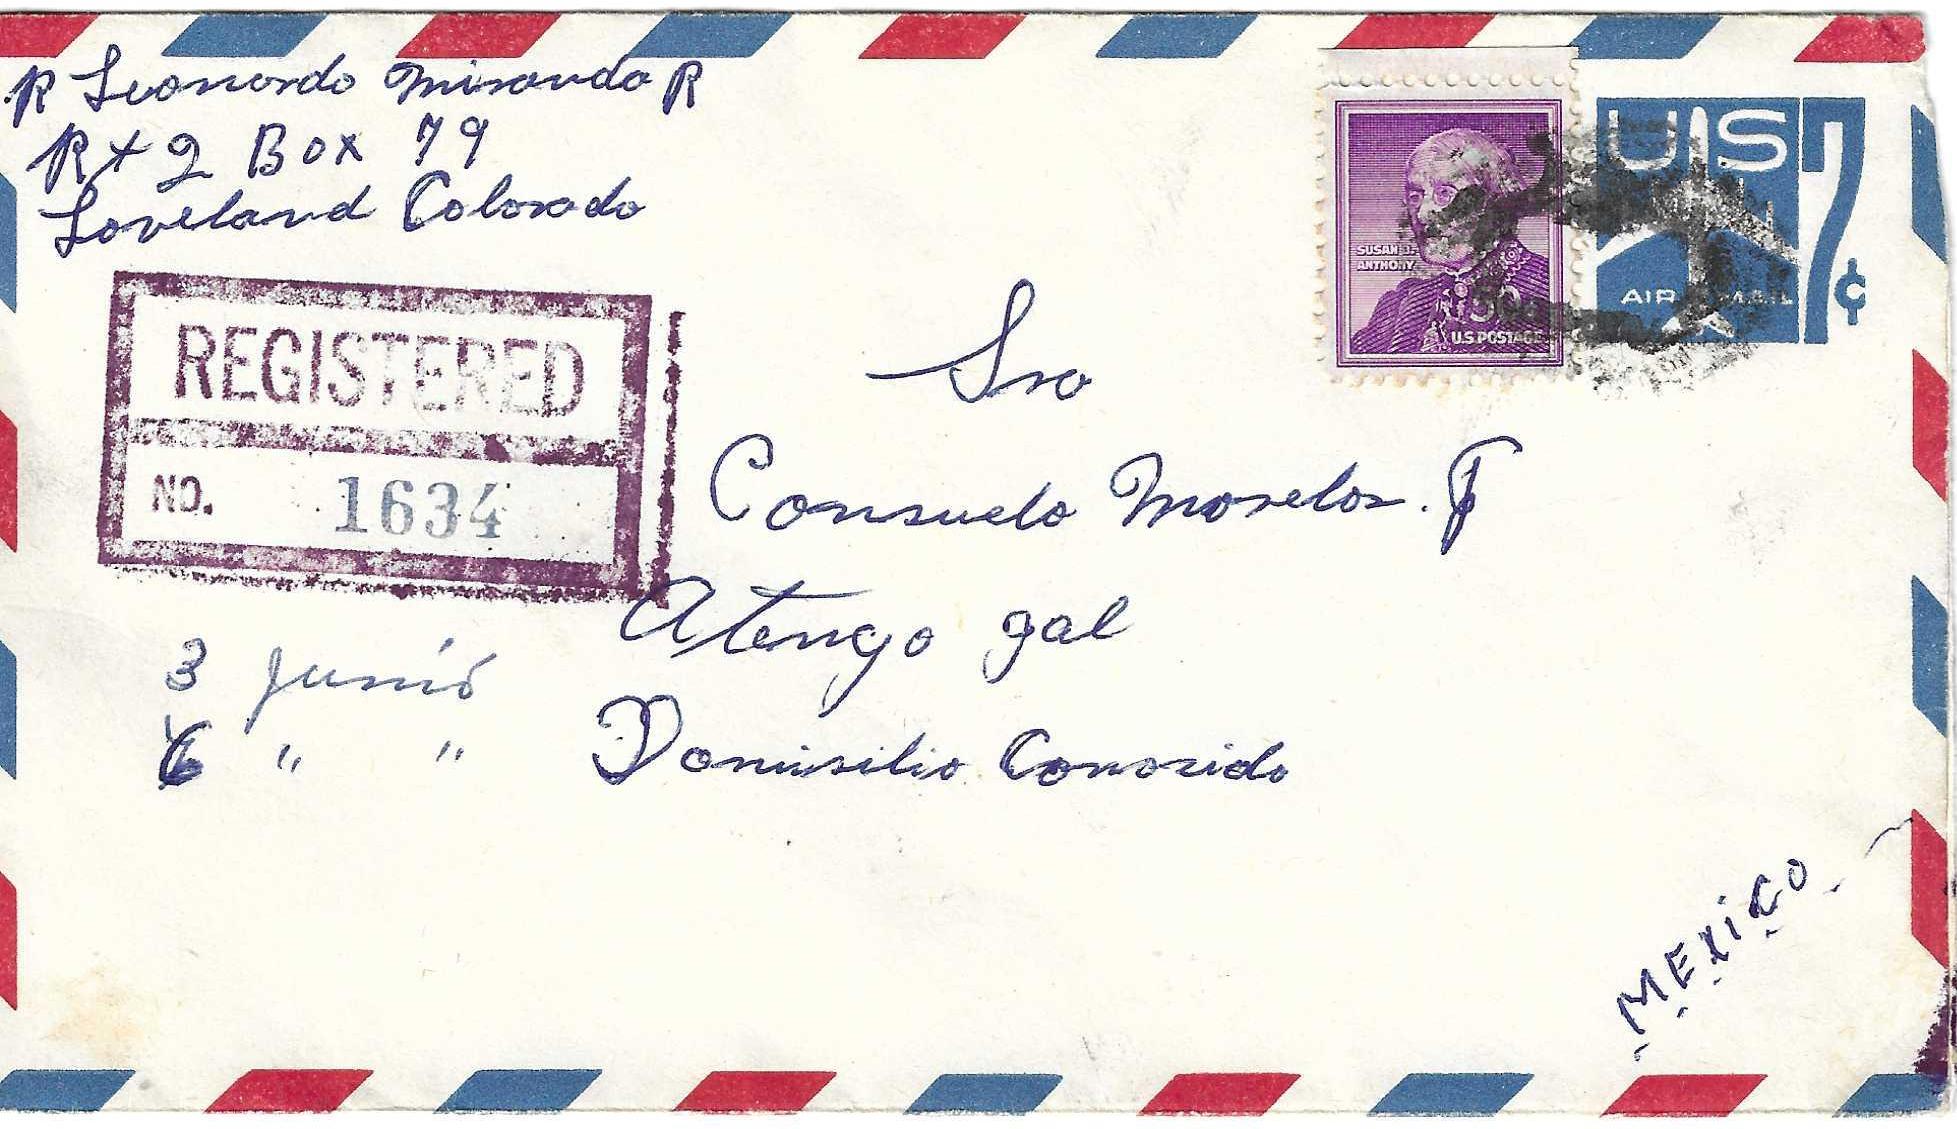 R Leonardo Miranda R
Rt 2 Box 79
Loveland Colorado
SUSAN B.
ANTHONY
50c
U.S. POSTAGE
US 7¢
AIR MAIL
REGISTERED
NO. 1634
Sra
Consuelo Morelos. F
Atengo Jal
Domisilio Conosido
3 Junio
6 " "
MEXICO